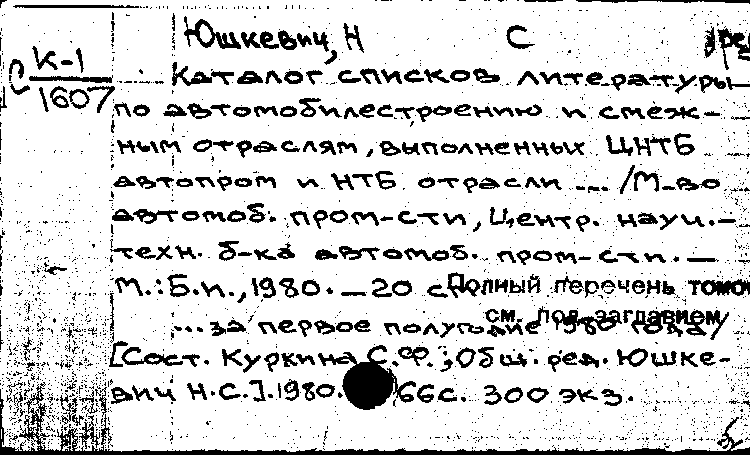 Юшкевич, Н С ред
С К-1
1607
Каталог списков литературы
по автомобилестроению и смеж-
ным отраслям, выполненных ЦНТБ
автопром и НТБ отрасли ... /М-во
автомоб. пром-сти, Центр. науч.-
техн. б-ка автомоб. пром-сти. —
М.: Б.и., 1980. — 20 см
Полный перечень томов
см. под заглавием
... за первое полугодие 1980 года /
[Сост. Куркина С.Ф.; Общ. ред. Юшке-
вич Н.С.]. 1980. 66с. 300 экз.